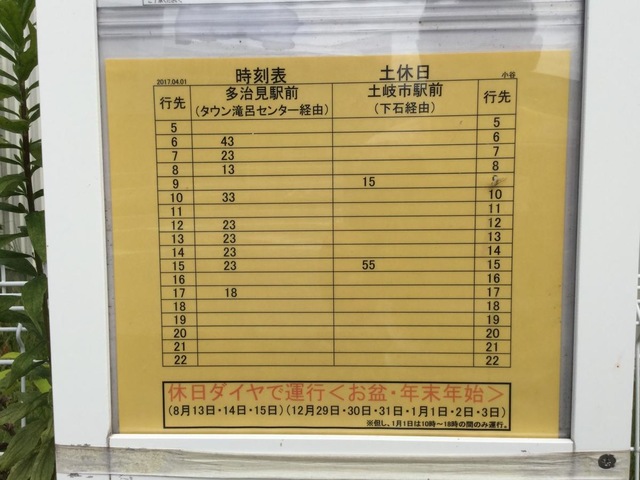 時刻表 土休日
2017.04.01 小谷
行先 多治見駅前 土岐市駅前 行先
(タウン滝呂センター経由) (下石経由)
5 5
6 43 6
7 23 7
8 13 8
9 15 9
10 33 10
11 11
12 23 12
13 23 13
14 23 14
15 23 55 15
16 16
17 18 17
18 18
19 19
20 20
21 21
22 22
休日ダイヤで運行<お盆・年末年始>
(8月13日・14日・15日)(12月29日・30日・31日・1月1日・2日・3日)
※但し、1月1日は10時～18時の間のみ運行。